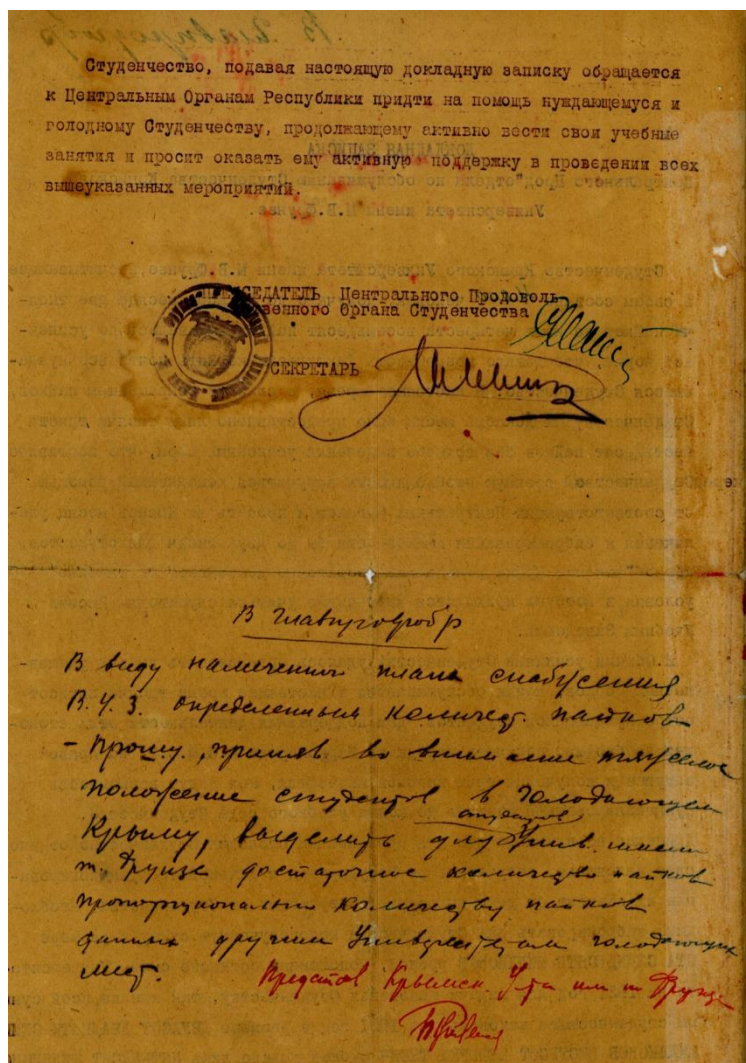 Студенчество, подавая настоящую докладную записку обращается
к Центральным Органам Республики придти на помощь нуждающемуся и
голодному Студенчеству, продолжающему активно вести свои учебные
занятия и просит оказать ему активную поддержку в проведении всех
вышеуказанных мероприятий.
ПРЕДСЕДАТЕЛЬ Центрального Продоволь-
ственного Органа Студенчества
СЕКРЕТАРЬ
В Главпрофобр
В виду намеченного плана снабжения
В.У.З. определенным количест. пайков
- прошу, приняв во внимание тяжелое
положение студентов в голодающем
Крыму, выделить для студентов Унив. имени
т. Фрунзе достаточное количество пайков
пропорционально количеству пайков
данных другим Университетам голодающих
мест.
Предстов Крымск. У-та им т Фрунзе